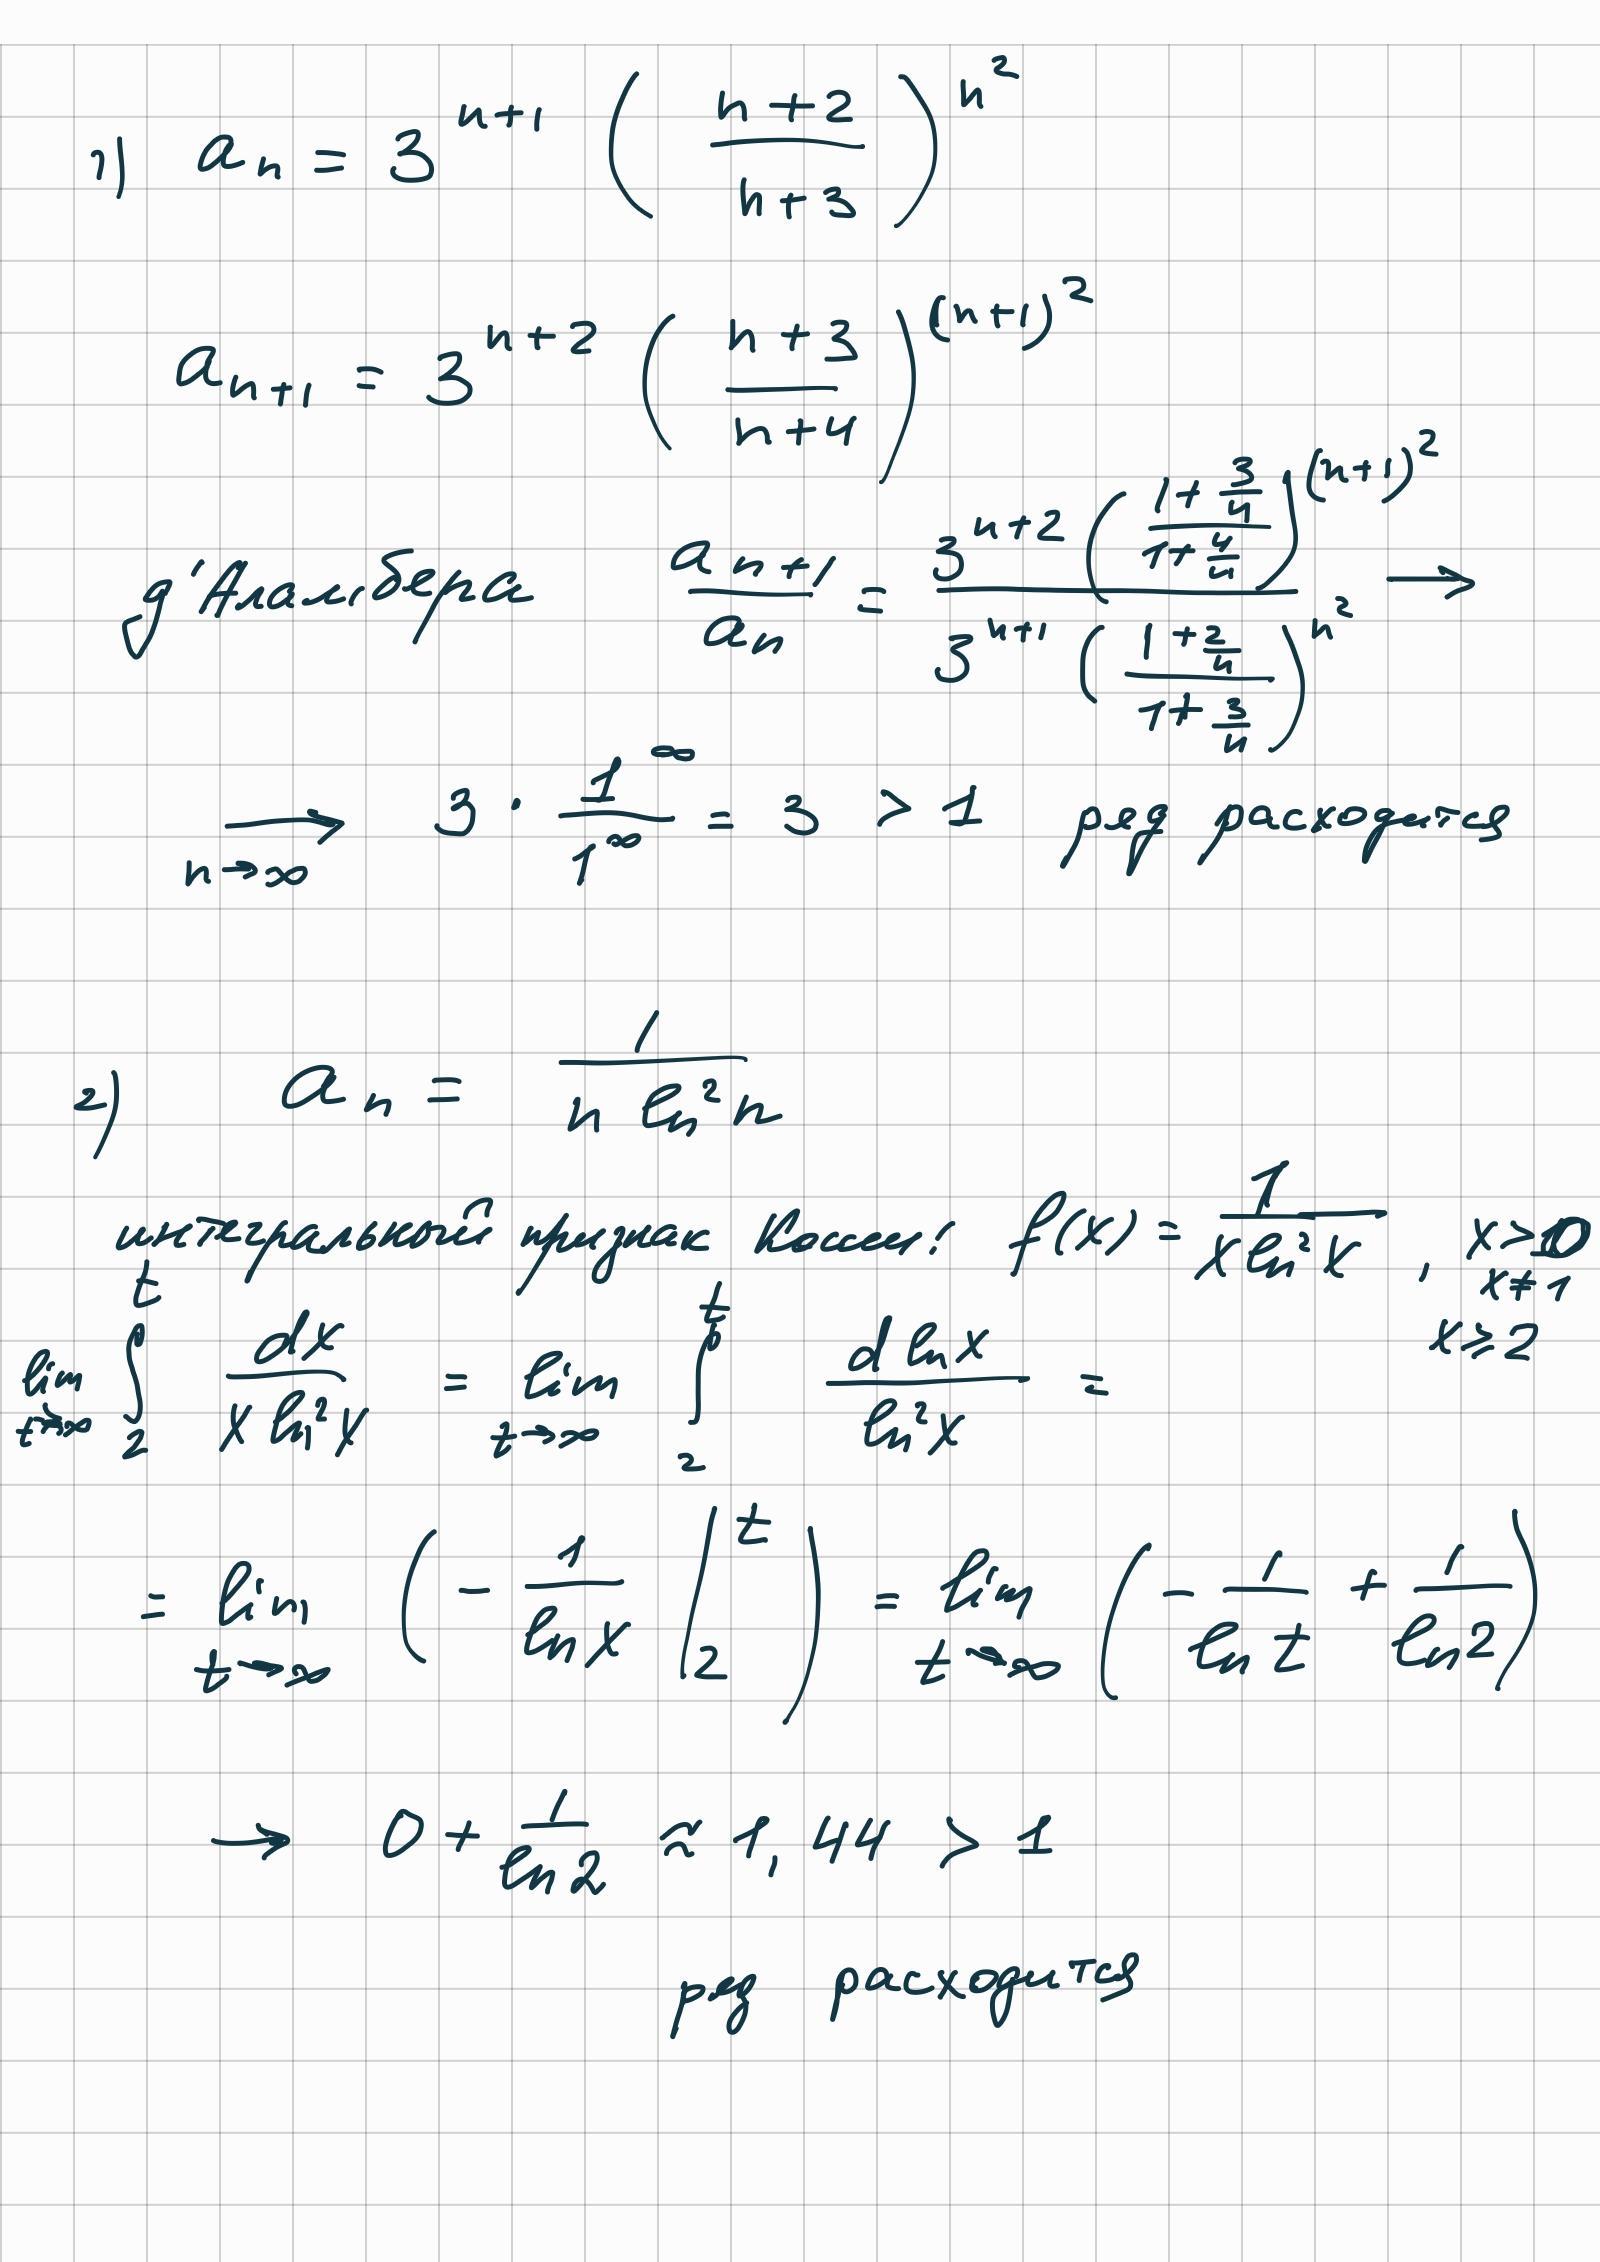 1) a_n = 3^{n+1} ( \frac{n+2}{n+3} )^{n^2}
a_{n+1} = 3^{n+2} ( \frac{n+3}{n+4} )^{(n+1)^2}
д'Аламбера \frac{a_{n+1}}{a_n} = \frac{3^{n+2} ( \frac{1+\frac{3}{n}}{1+\frac{4}{n}} )^{(n+1)^2}}{3^{n+1} ( \frac{1+\frac{2}{n}}{1+\frac{3}{n}} )^{n^2}} →
→_{n→∞} 3 · \frac{1^∞}{1^∞} = 3 > 1 ряд расходится
2) a_n = \frac{1}{n ln^2 n}
интегральный признак Коши: f(x) = \frac{1}{x ln^2 x}, x>0
x≠1
x⩾2
lim_{t→∞} ∫_2^t \frac{dx}{x ln^2 x} = lim_{t→∞} ∫_2^t \frac{d ln x}{ln^2 x} =
= lim_{t→∞} ( - \frac{1}{ln x} |_2^t ) = lim_{t→∞} ( - \frac{1}{ln t} + \frac{1}{ln 2} )
→ 0 + \frac{1}{ln 2} ≈ 1,44 > 1
ряд расходится